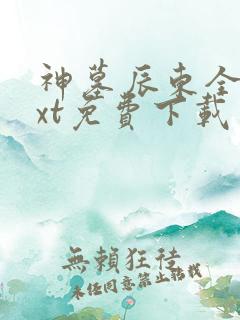 神墓 辰東全
xt免費下載
無賴狂徒
未经同意禁止转载